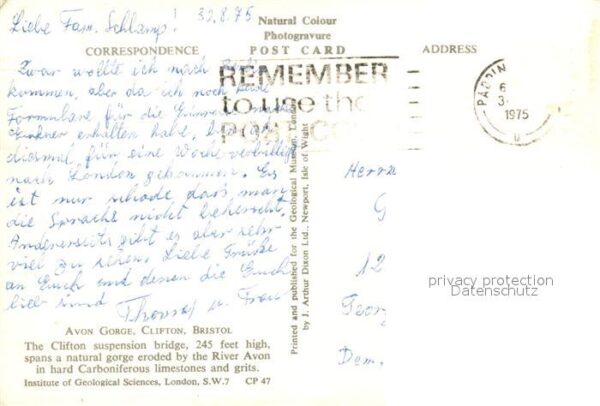 Liebe Fam. Schlamp! 30.8.75
Natural Colour
Photogravure
CORRESPONDENCE POST CARD ADDRESS
Zwar wollte ich nach
kommen, aber da ich noch keine
Formulare für die
erhalten habe, bin ich
diesmal für eine Woche verbilligt
nach London gekommen. Es
ist nur schade, dass man
die Sprache nicht beherrscht.
Andererseits gibt es aber sehr
viel zu sehen. Liebe Grüße
an Euch und denen die Euch
lieb sind Thomas u. Frau
REMEMBER
to use the
PADDIN
6
3
1975
Printed and published for the Geological Museum, London
by J. Arthur Dixon Ltd., Newport, Isle of Wight
Herrn
G
12
Georg
Dem.
privacy protection
Datenschutz
AVON GORGE, CLIFTON, BRISTOL
The Clifton suspension bridge, 245 feet high,
spans a natural gorge eroded by the River Avon
in hard Carboniferous limestones and grits.
Institute of Geological Sciences, London, S.W.7 CP 47